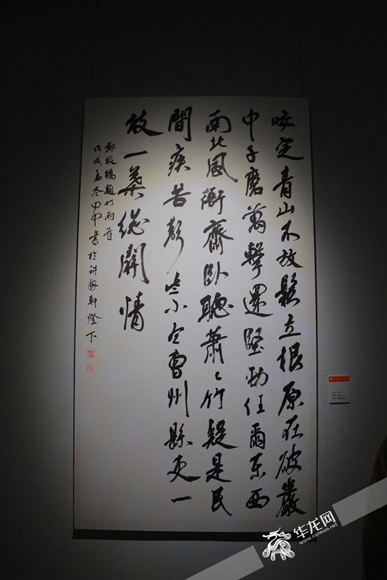 咬定青山不放鬆立根原在破巖
中千磨萬擊還堅勁任爾東西
南北風衙齋卧聽蕭〻竹疑是民
間疾苦聲些小吾曹州縣吏一
枝一葉總關情
鄭板橋題竹兩首
戊戌孟冬書於軒燈下
华龙网
www.cqnews.net